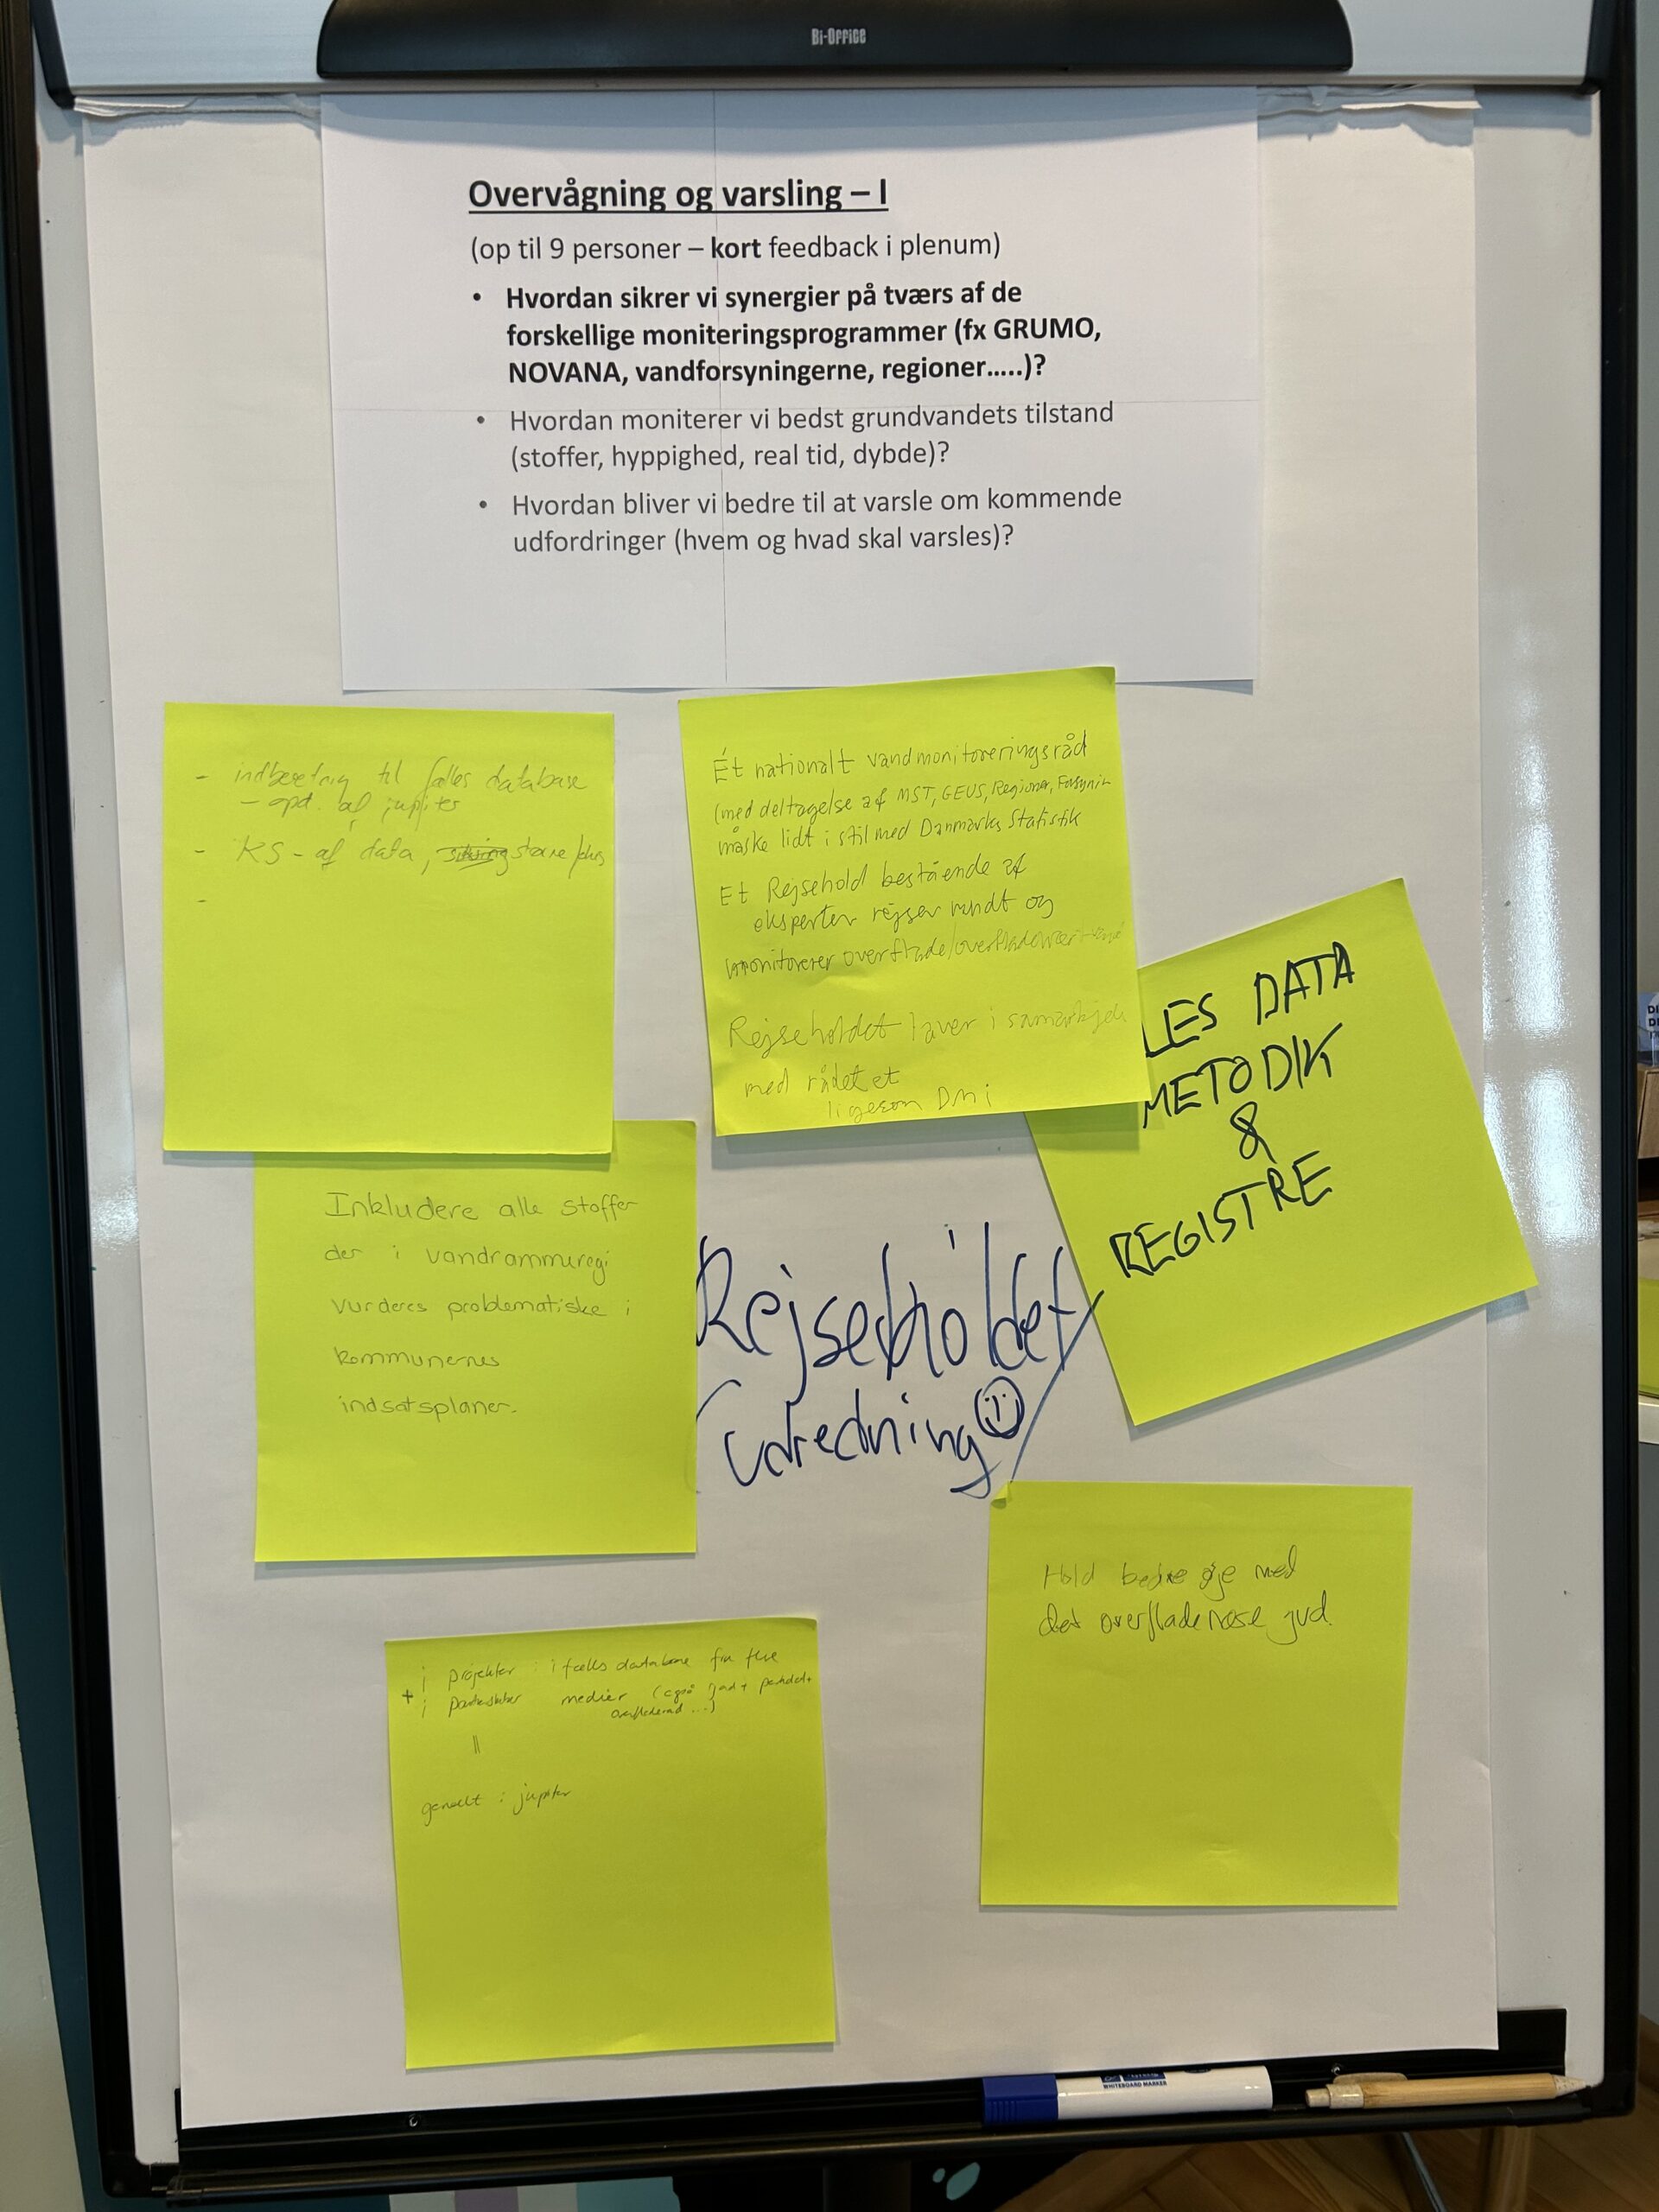 Bi-Office
Overvågning og varsling – I
(op til 9 personer – kort feedback i plenum)
• Hvordan sikrer vi synergier på tværs af de
forskellige moniteringsprogrammer (fx GRUMO,
NOVANA, vandforsyningerne, regioner…..)?
• Hvordan moniterer vi bedst grundvandets tilstand
(stoffer, hyppighed, real tid, dybde)?
• Hvordan bliver vi bedre til at varsle om kommende
udfordringer (hvem og hvad skal varsles)?
- til fælles database
- opd. af jupiter
- KS - af data,
-
Ét nationalt vandmonitoreringsråd
(med deltagelse af MST, GEUS, Regioner,
måske lidt i stil med Danmarks Statistik
Et Rejsehold bestående af
eksperter rejser rundt og
monitorerer
Rejseholdet laver i
med rådet et
ligesom DMI
LES DATA
METODIK
&
REGISTRE
Inkludere alle stoffer
der i vandrammeregi
vurderes problematiske i
kommunernes
indsatsplaner.
Rejseholdet
Udredning
Hold bedre øje med
det overfladenære
i projekter i fælles database fra flere
+ i medier (også
generelt : jupiter
WHITEBOARD MARKER